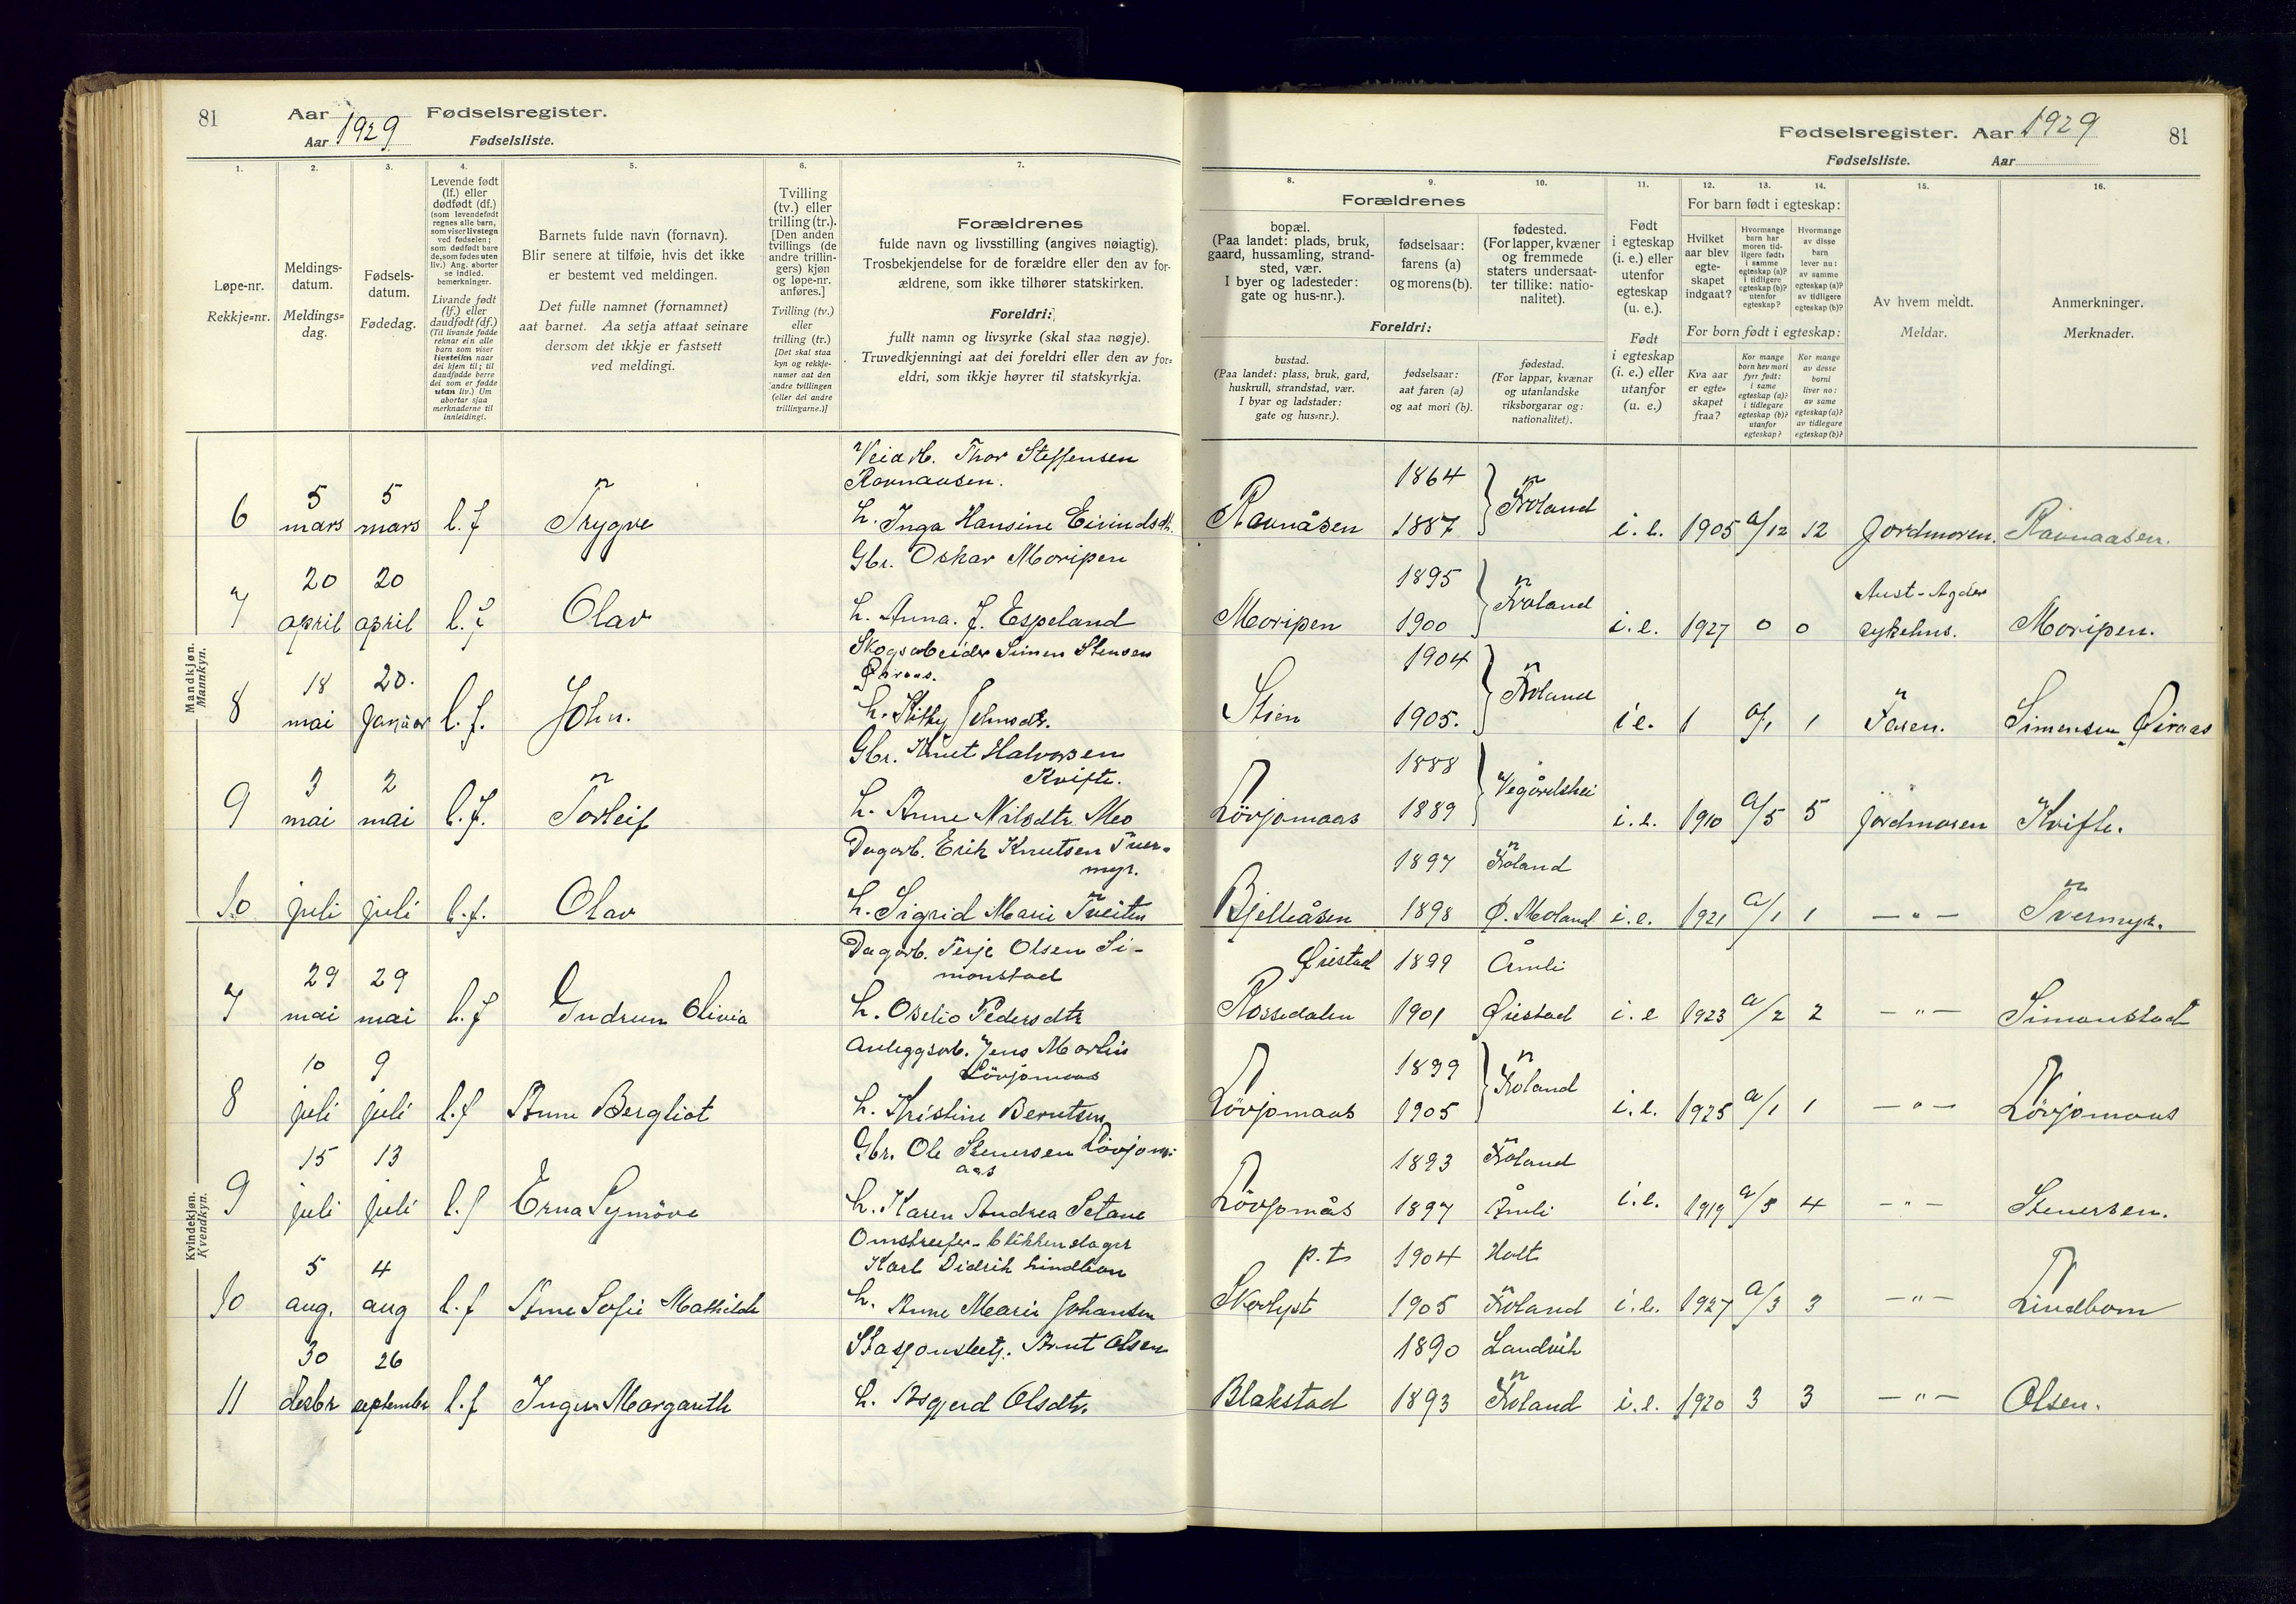 81 Aar 1929 Fødselsregister.
Aar Fødselsliste.
1. 2. 3. 4. 5. 6. 7.
Løpe-nr.
Rekkje=nr.
Meldings-
datum.
Meldings=
dag.
Fødsels-
datum.
Fødedag.
Levende født
(lf.) eller
dødfødt (df.)
(som levendefødt
regnes alle barn,
som viser livstegn
ved fødselen;
som dødfødt bare
de, som fødes uten
liv.) Ang. aborter
se indled.
bemerkninger.
Livande født
(lf.) eller
daudfødt (df.)
(Til livande fødde
reknar ein alle
barn som viser
livsteikn naar
dei kjem til; til
daudfødde berre
dei som er fødde
utan liv.) Um
abortar sjaa
merknaderne til
innleidingi.
Barnets fulde navn (fornavn).
Blir senere at tilføie, hvis det ikke
er bestemt ved meldingen.
Det fulle namnet (fornamnet)
aat barnet. Aa setja attaat seinare
dersom det ikkje er fastsett
ved meldingi.
Tvilling
(tv.) eller
trilling (tr.).
[Den anden
tvillings (de
andre trillin-
gers) kjøn
og løpe-nr.
anføres.]
Tvilling (tv.)
eller
trilling (tr.)
[Det skal staa
kyn og rekkje-
numer aat den
andre tvillingen
(eller dei andre
trillingarne.)]
Forældrenes
fulde navn og livsstilling (angives nøiagtig).
Trosbekjendelse for de forældre eller den av for-
ældrene, som ikke tilhører statskirken.
Foreldri:
fullt namn og livsyrke (skal staa nøgje).
Truvedkjenningi aat dei foreldri eller den av for=
eldri, som ikkje høyrer til statskyrkja.
Mandkjøn.
Mannkyn.
Veiarb. Thor Steffensen
Ravnaasen.
6 5 mars 5 mars l. f Trygve h. Inga Hansine Eivindsdtr.
Gbr. Oskar Moripen
7 20 april 20 april l. f Olav h. Anna. J. Espeland
Skogsarbeider Simen Stensen
8 18 mai 20. januar l. f. John. h. Johnsdtr.
Gbr. Knut Halvorsen
Kvifte.
9 3 mai 2 mai l. f. Torleif h. Anne Nilsdtr. Meo
Dagarb. Erik Knutsen Tver-
myr.
10 juli juli l. f. Olav h. Sigrid Marie Tveiten
Kvindekjøn.
Kvendkyn.
Dagarb. Terje Olsen Si-
monstad
7 29 mai 29 mai l. f Gudrun Olivia h. Oselio Pedersdtr
Anleggsarb. Jens Martin
Lövjomaas
8 10 juli 9 juli l. f Anne Bergliot h. Kristine Berntsen
Gbr. Ole Stenersen Lövjom-
aas
9 15 juli 13 juli l. f Erna Synnöve h. Karen Andrea Setane
Omstreifer-blikkenslager
Karl Didrik Lindbom
10 5 aug. 4 aug l. f Anne Sofie Mathilde h. Anne Marie Johansen
Stasjonsbetj. Arnt Olsen
11 30 desbr 26 september l. f Inger Margareth h. Asgjerd Olsdtr.
Fødselsregister. Aar 1929 81
Fødselsliste. Aar
8. 9. 10. 11. 12. 13. 14. 15. 16.
Forældrenes
bopæl.
(Paa landet: plads, bruk,
gaard, hussamling, strand-
sted, vær.
I byer og ladesteder:
gate og hus-nr.).
fødselsaar:
farens (a)
og morens (b).
fødested.
(For lapper, kvæner
og fremmede
staters undersaat-
ter tillike: natio-
nalitet).
Foreldri:
bustad.
(Paa landet: plass, bruk, gard,
huskrull, strandstad, vær.
I byar og ladstader:
gate og hus=nr.).
fødselsaar:
aat faren (a)
og aat mori (b).
fødestad.
(For lappar, kvænar
og utanlandske
riksborgarar og:
nationalitet).
Født
i egteskap
(i. e.) eller
utenfor
egteskap
(u. e.).
Født
i egteskap
(i. e.) eller
utanfor
(u. e.)
For barn født i egteskap:
Hvilket
aar blev
egte-
skapet
indgaat?
Hvormange
barn har
moren tid-
ligere født:
i samme
egteskap (a)?
i tidligere
egteskap (b)?
utenfor
egteskap?
Hvormange
av disse
barn
lever nu:
av samme
egteskap (a)?
av tidligere
egteskap (b)?
For born født i egteskap:
Kva aar
er egte=
skapet
fraa?
Kor mange
born hev mori
fyrr født:
i same
egteskap (a)?
i tidlegare
egteskap (b)?
utanfor
egteskap?
Kor mange
av desse
borni
liver no:
av same
egteskap (a)?
av tidlegare
egteskap (b)?
Av hvem meldt.
Meldar.
Anmerkninger.
Merknader.
Ravnåsen 1864 1887 Froland i. e. 1905 a/12 12 Jordmoren. Ravnaasen.
Moripen 1895 1900 Froland i. e. 1927 0 0 Aust-Agder sykehus. Moripen.
Stien 1904 1905. Froland i e. 1 a/1 1 Faren. Simensen
Lövjomaas 1888 1889 Vegårdshei i. e. 1910 a/5 5 jordmoren Kvifte.
Bjelleåsen 1897 Froland 1898 Ø. Moland i. e. 1921 a/1 1 — " — Tvermyr.
Øiestad 1899 Åmli
Rossedalen 1901 Øiestad i. e 1923 a/2 2 — " — Simonstad
Lövjomaas 1899 1905 Froland i. e. 1925 a/1 1 — " — Lövjomaas
Lövjomås 1893 Froland 1897 Åmli i. e. 1919 a/5 4 — " — Stenersen.
p. t. 1904 Holt
Skolyst 1905 Froland i. e. 1927 a/3 3 — " — Lindbom
1890 Landvik
Blakstad 1893 Froland i. e. 1920 3 3 — " — Olsen.